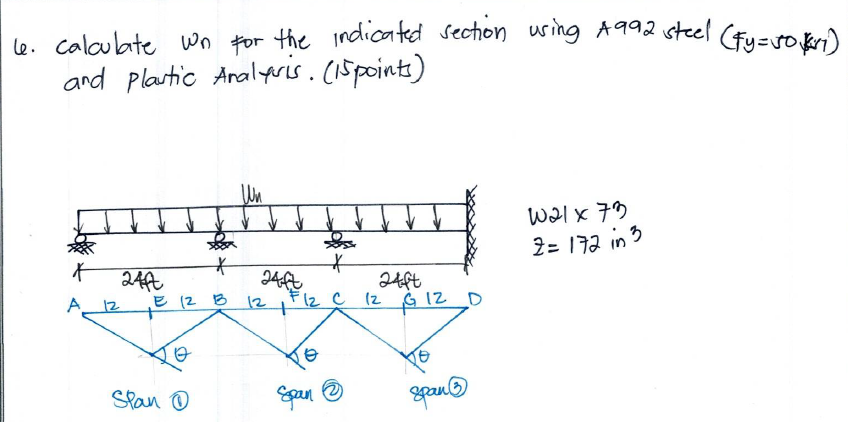 6. calculate Wn for the indicated section using A992 steel (Fy=50 ksi)
and plastic Analysis. (15 points)
Wn
W21 x 73
Z = 172 in3
24ft 24ft 24ft
A 12 E 12 B 12 F 12 C 12 G 12 D
θ θ θ
Span ① Span ② span ③